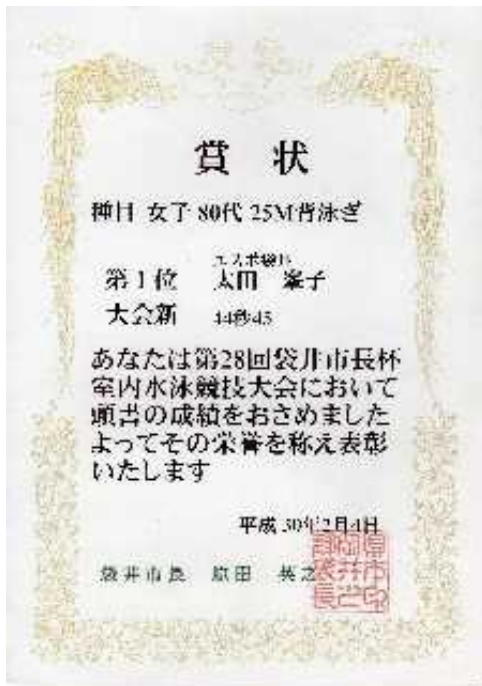 賞状
種目 女子 80代 25M背泳ぎ
エスポ袋井
第1位 太田 峯子
大会新 44秒45
あなたは第28回袋井市長杯
室内水泳競技大会において
頭書の成績をおさめました
よってその栄誉を称え表彰
いたします
平成 30年2月4日
袋井市長 原田 英之